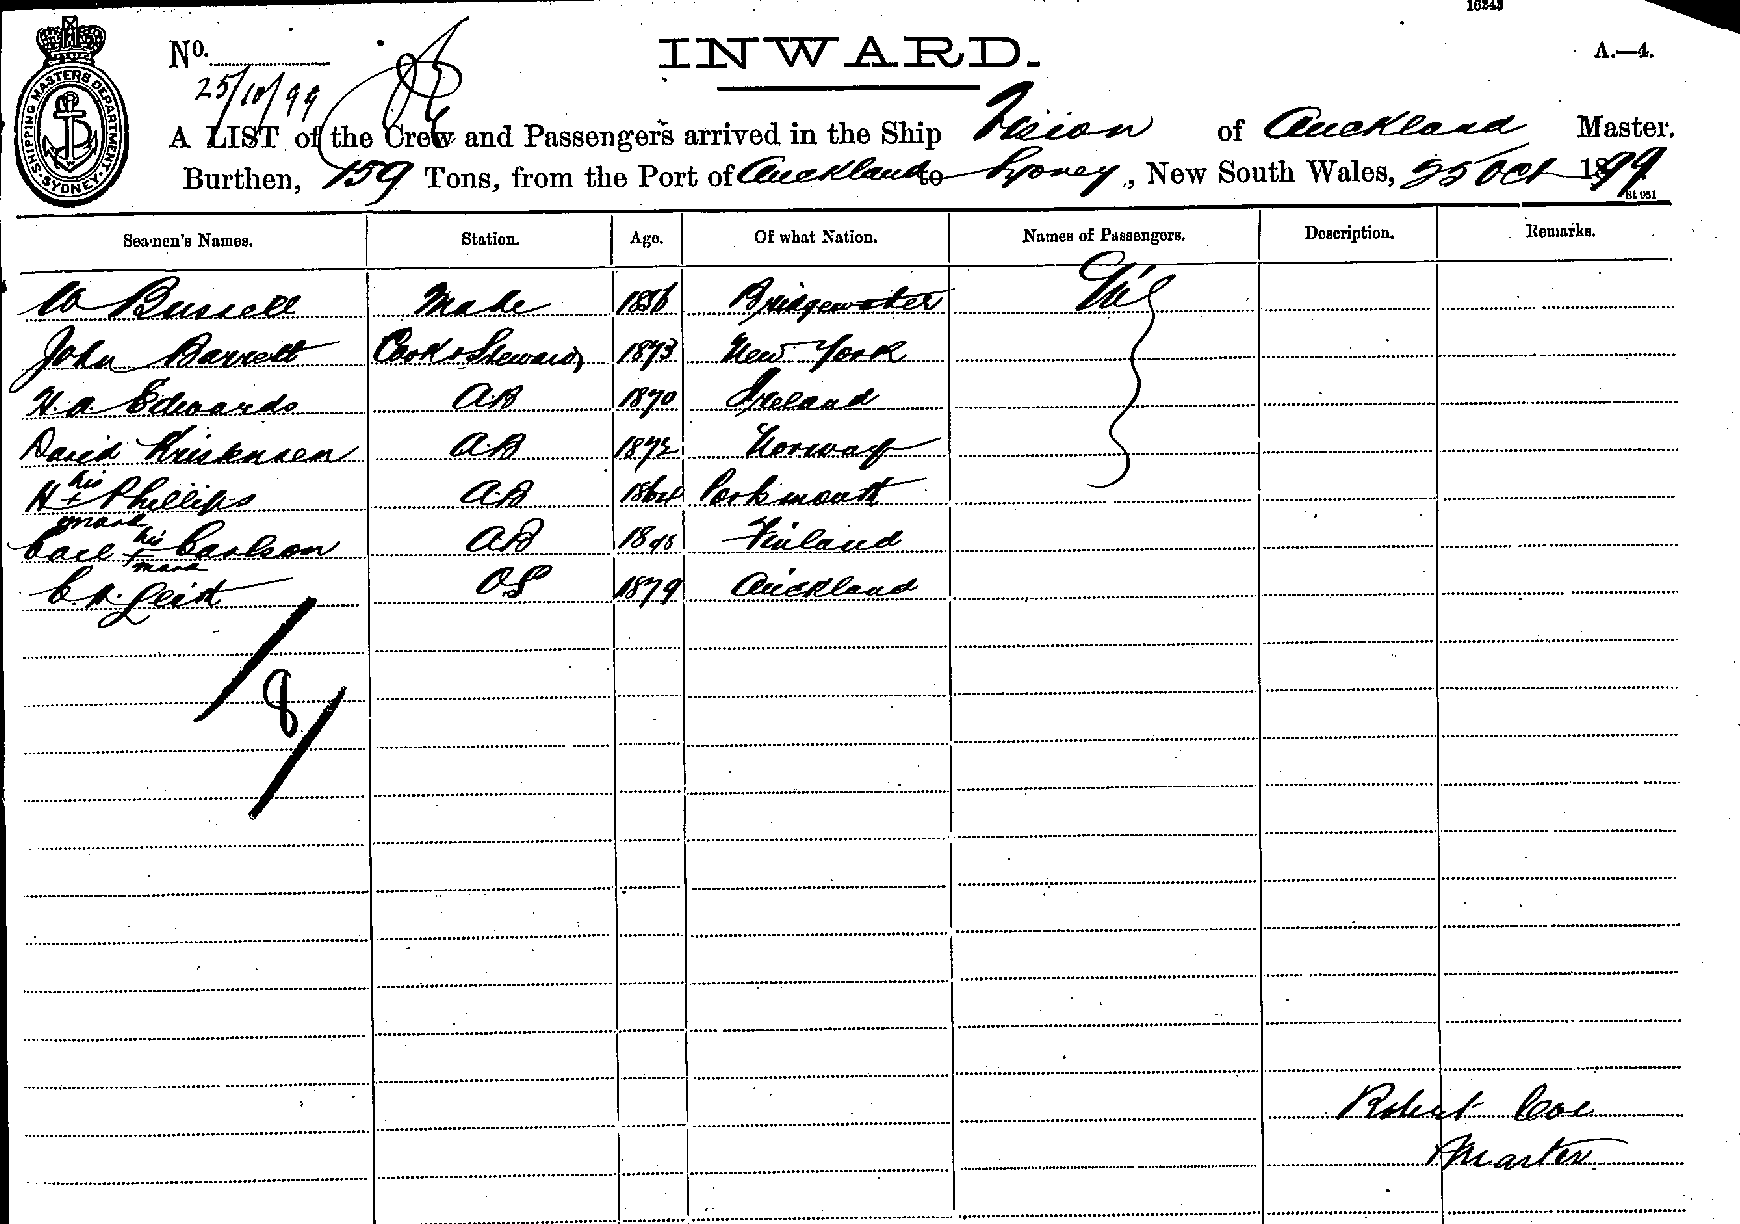 16243
No.
INWARD.
A.—4.
25/10/99
SHIPPING MASTERS DEPARTMENT. SYDNEY.
A LIST of the Crew and Passengers arrived in the Ship Vision of Auckland Master.
Burthen, 159 Tons, from the Port of Auckland to Sydney, New South Wales, 25 Oct 1899
Seamen's Names. Station. Age. Of what Nation. Names of Passengers. Description. Remarks.
W Bussell Mate 1856 Bridgewater Nil
John Barrett Cook & Steward 1873 New York
H A Edwards AB 1870 Ireland
David Kristensen AB 1872 Norway
H his + mark Phillips AB Portsmouth
Carl his + mark Carlson AB Finland
C. A. OS 1879 Auckland
8
Robert Coe
Master